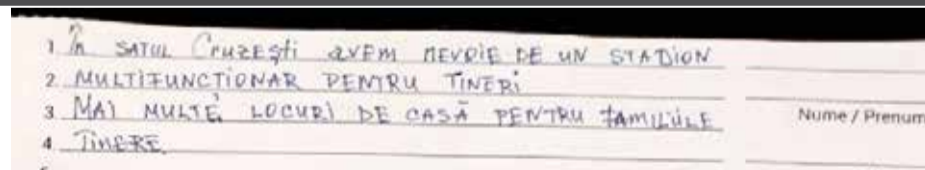 1 În SATUL CRUZEȘTI AVEM NEVOIE DE UN STADION
2 MULTIFUNCTIONAR PENTRU TINERI
3 MAI MULTE LOCURI DE CASĂ PENTRU FAMILIILE
Nume / Prenum
4 TINERE